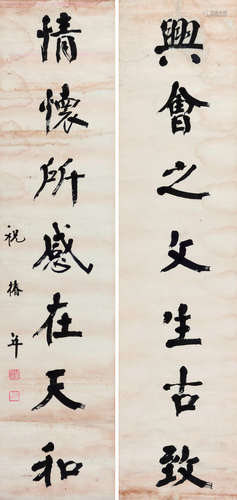 興會之文生古致
情懷所感在天和
祝椿年